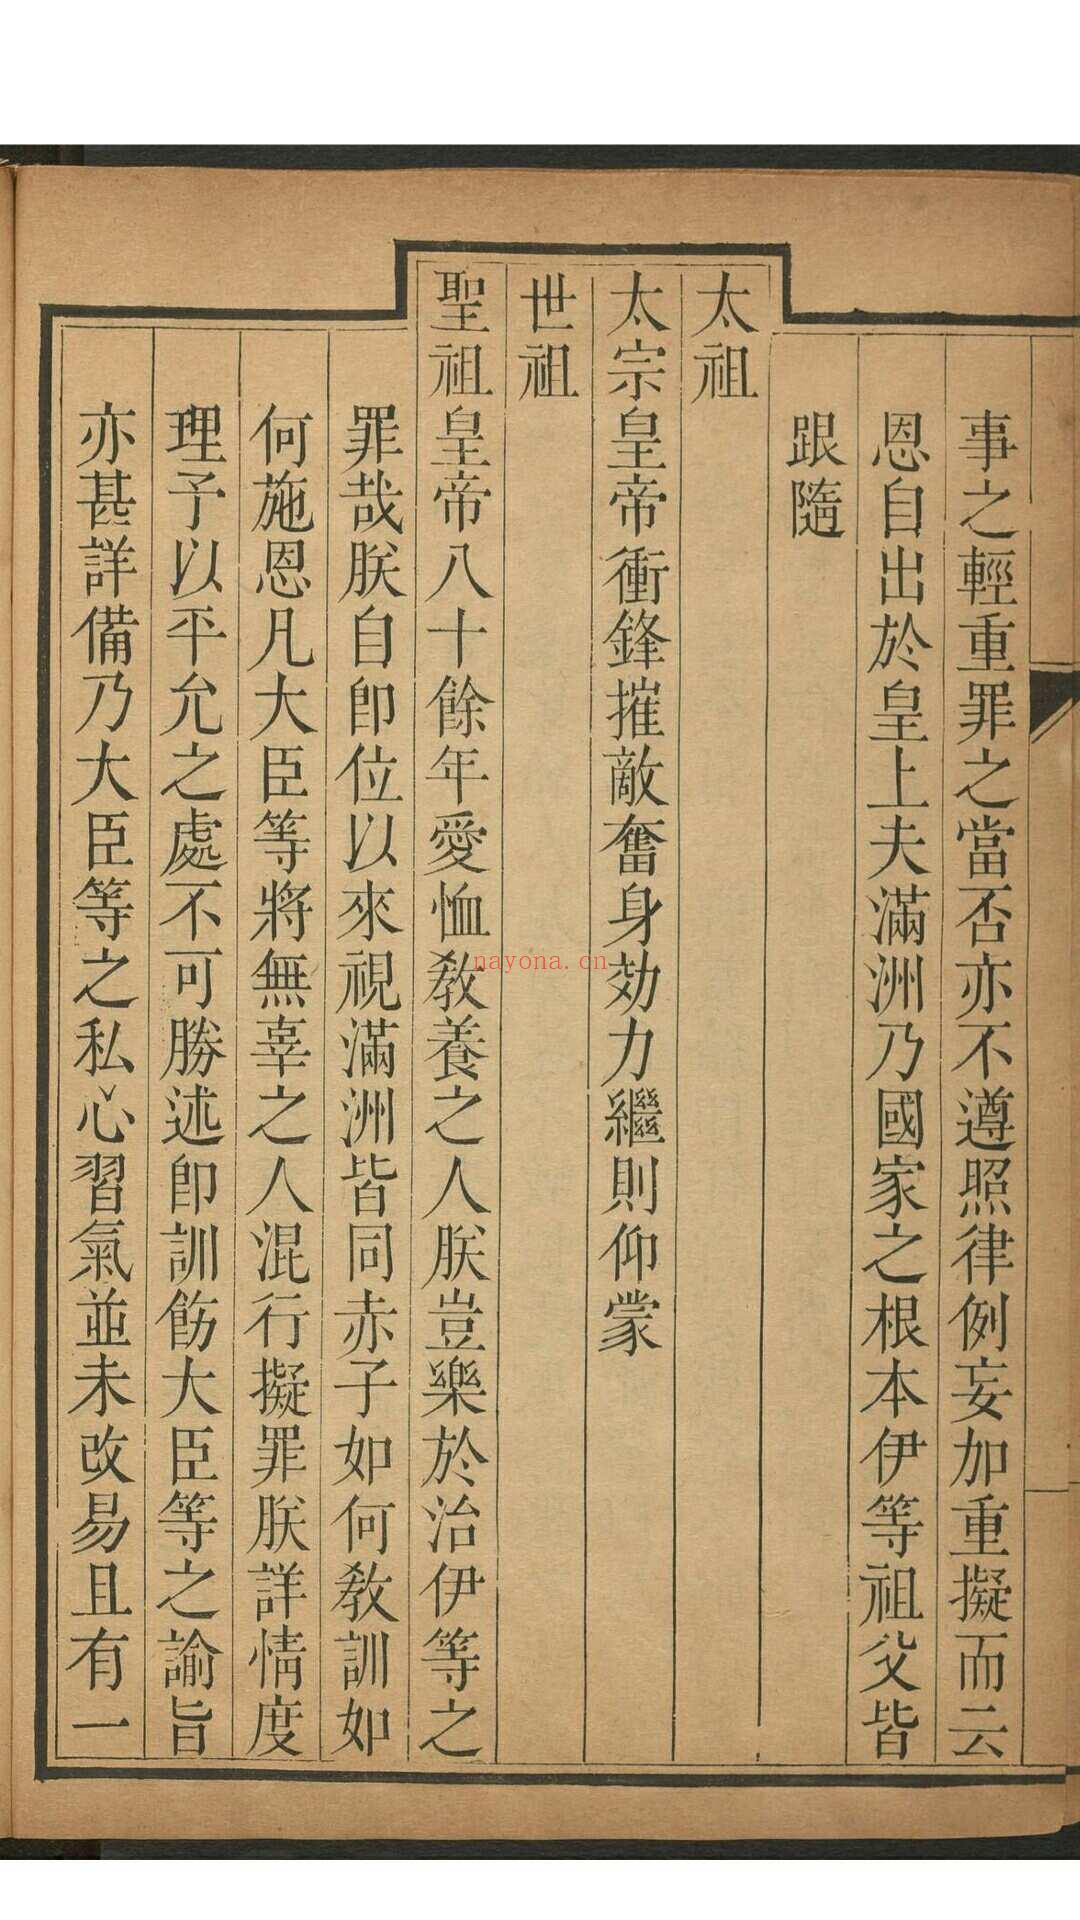 事之輕重罪之當否亦不遵照律例妄加重擬而云
恩自出於皇上夫滿洲乃國家之根本伊等祖父皆
跟隨
太祖
太宗皇帝衝鋒摧敵奮身効力繼則仰蒙
世祖
聖祖皇帝八十餘年愛恤教養之人朕豈樂於治伊等之
罪哉朕自卽位以來視滿洲皆同赤子如何教訓如
何施恩凡大臣等將無辜之人混行擬罪朕詳情度
理予以平允之處不可勝述卽訓飭大臣等之諭旨
亦甚詳備乃大臣等之私心習氣並未改易且有一
nayona.cn